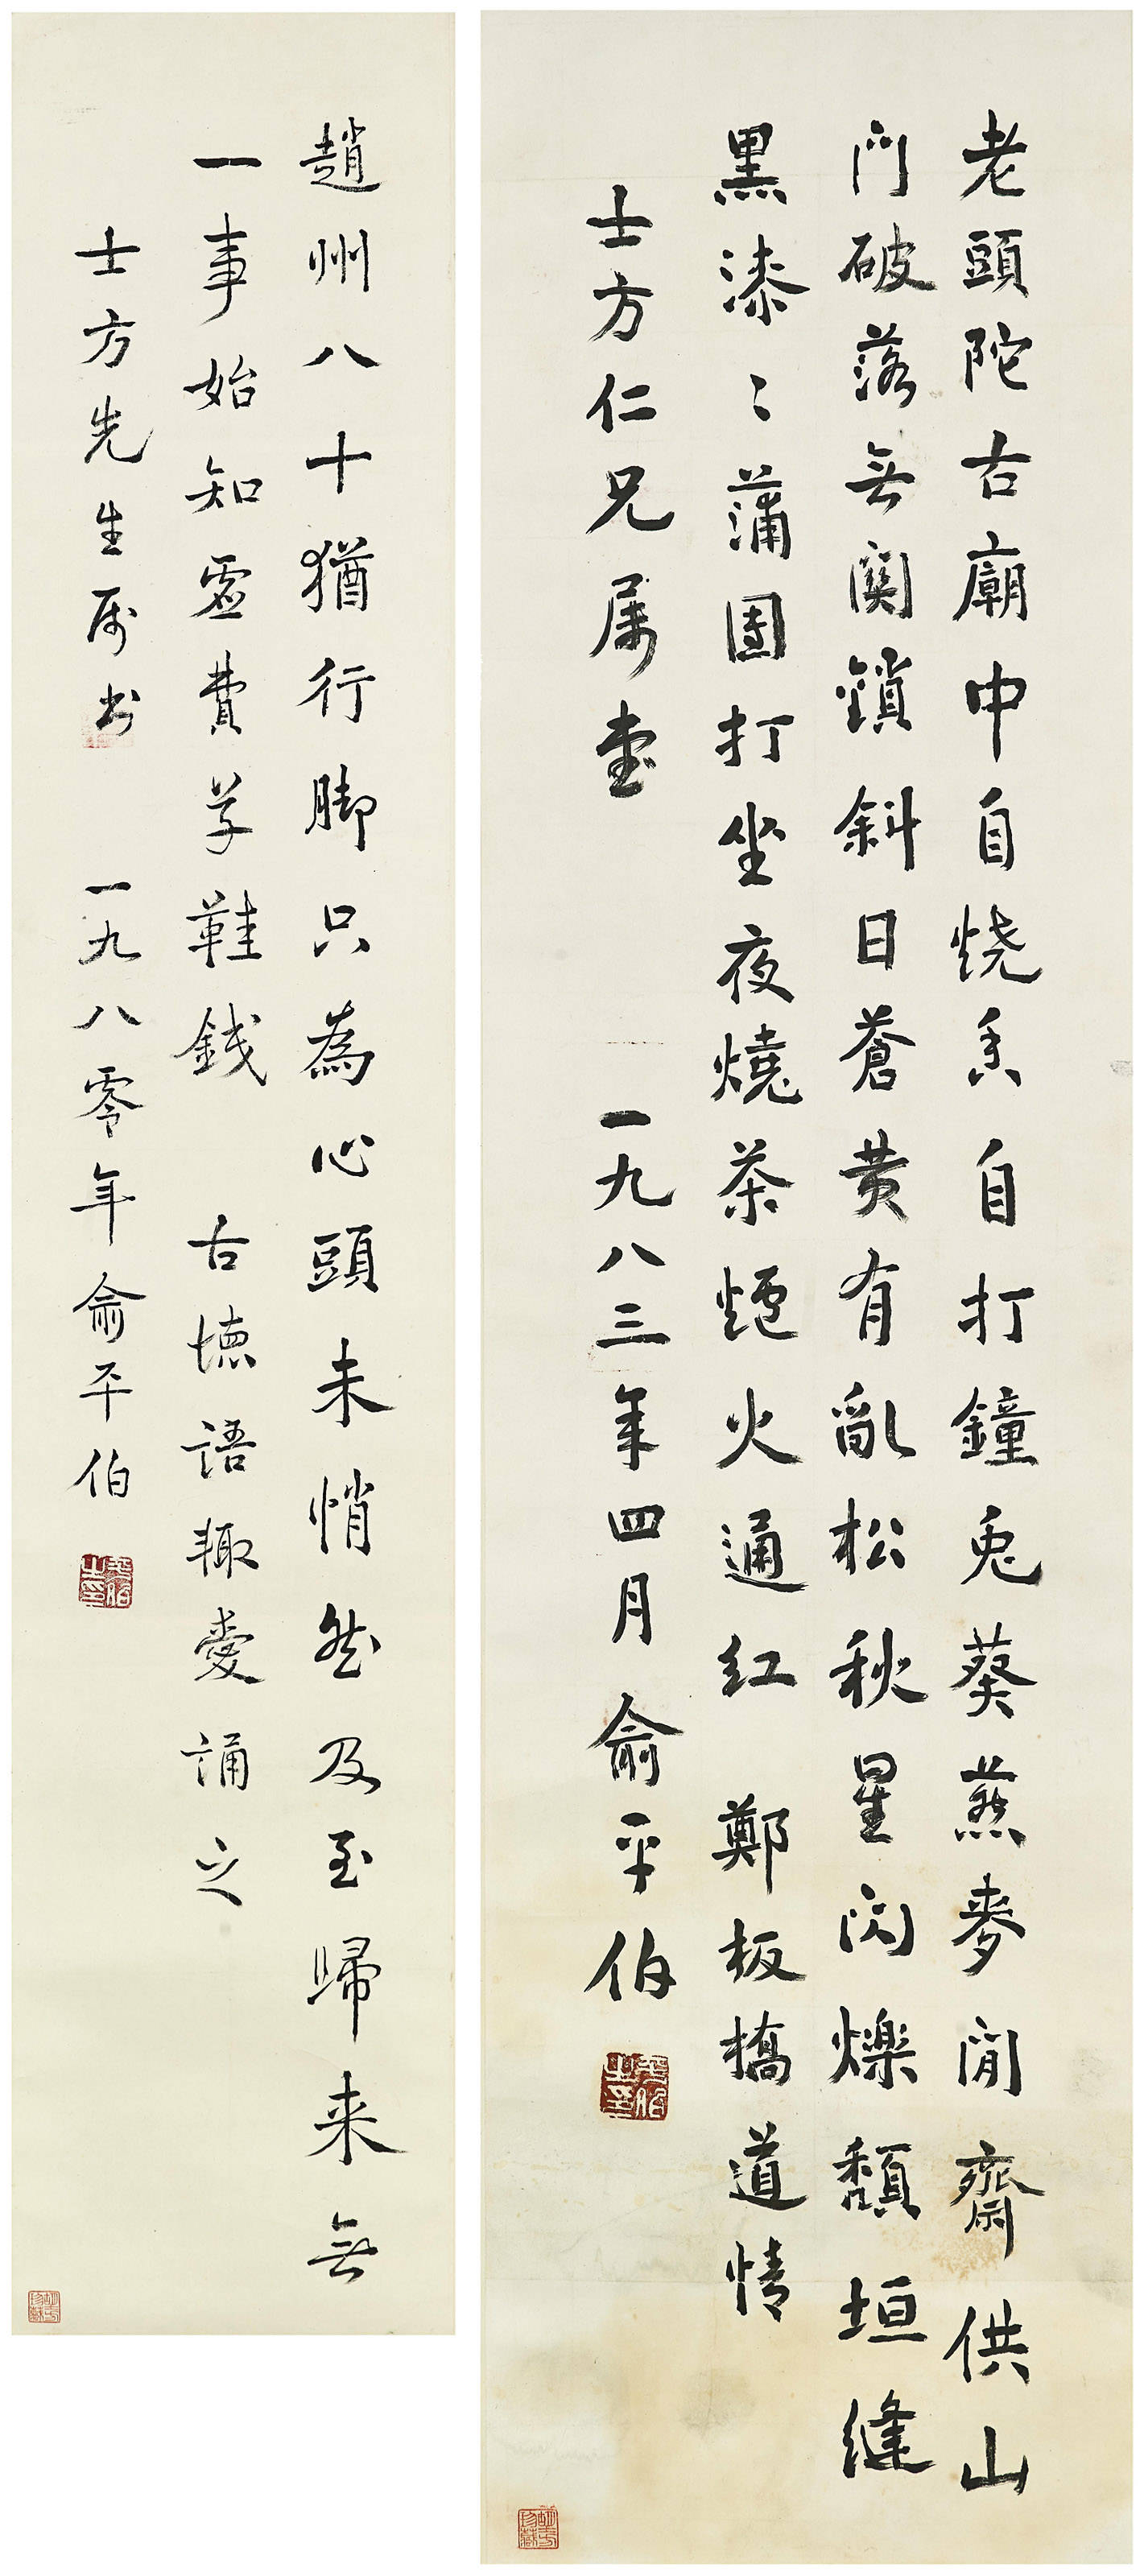 老頭陀古廟中自燒香自打鐘兎葵燕麥閒齋供山
門破落無関鎖斜日蒼黄有亂松秋星閃爍頹垣縫
黑漆〻蒲團打坐夜燒茶爐火通紅 鄭板橋道情
士方仁兄属書 一九八三年四月俞平伯
趙州八十猶行脚只為心頭未悄然及至歸来無
一事始知虛費草鞋錢 古德語輙愛誦之
士方先生属书 一九八零年俞平伯
平伯之印